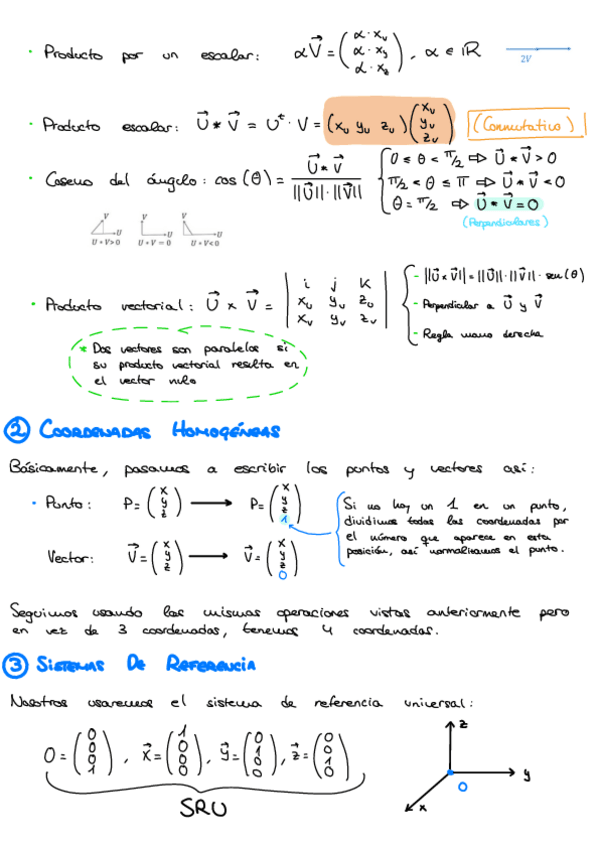 · Producto por un escalar: αV⃗ = (α·xᵥ α·xᵧ α·x_z), α ∈ ℝ
2V
· Producto escalar: U⃗ * V⃗ = Uᵗ · V = (xᵤ yᵤ zᵤ)(xᵥ yᵥ zᵥ) (Conmutativo)
· Coseno del ángulo: cos(θ) = U⃗ * V⃗ / ||U⃗||·||V⃗||
0 ≤ θ < π/2 ⇒ U⃗ * V⃗ > 0
π/2 < θ ≤ π ⇒ U⃗ * V⃗ < 0
θ = π/2 ⇒ U⃗ * V⃗ = 0
(Perpendiculares)
V V V
U U U
U * V > 0 U * V = 0 U * V < 0
· Producto vectorial: U⃗ x V⃗ = | i j k
xᵤ yᵤ zᵤ
xᵥ yᵥ zᵥ |
- ||U⃗ x V⃗|| = ||U⃗||·||V⃗||·sen(θ)
- Perpendicular a U⃗ y V⃗
- Regla mano derecha
* Dos vectores son paralelos si
su producto vectorial resulta en
el vector nulo
2 COORDENADAS HOMOGÉNEAS
Básicamente, pasamos a escribir los puntos y vectores así:
· Punto: P = (x y z) → P = (x y z 1)
Si no hay un 1 en un punto,
dividimos todas las coordenadas por
el número que aparece en esta
posición, así normalizamos el punto.
Vector: V⃗ = (x y z) → V⃗ = (x y z 0)
Seguimos usando las mismas operaciones vistas anteriormente pero
en vez de 3 coordenadas, tenemos 4 coordenadas.
3 SISTEMAS DE REFERENCIA
Nosotros usaremos el sistema de referencia universal:
O = (0 0 0 1), x⃗ = (1 0 0 0), y⃗ = (0 1 0 0), z⃗ = (0 0 1 0)
SRU
z
y
O
x